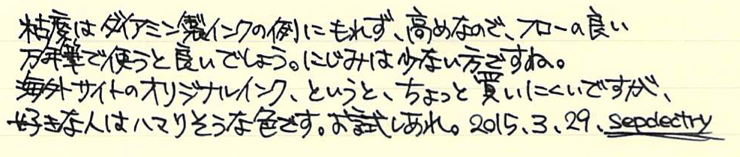 粘度はダイアミン製インクの例にもれず、高めなので、フローの良い
万年筆で使うと良いでしょう。にじみは少ない方ですね。
海外サイトのオリジナルインク、というと、ちょっと買いにくいですが、
好きな人はハマりそうな色です。お試しあれ。2015.3.29. sepdectry